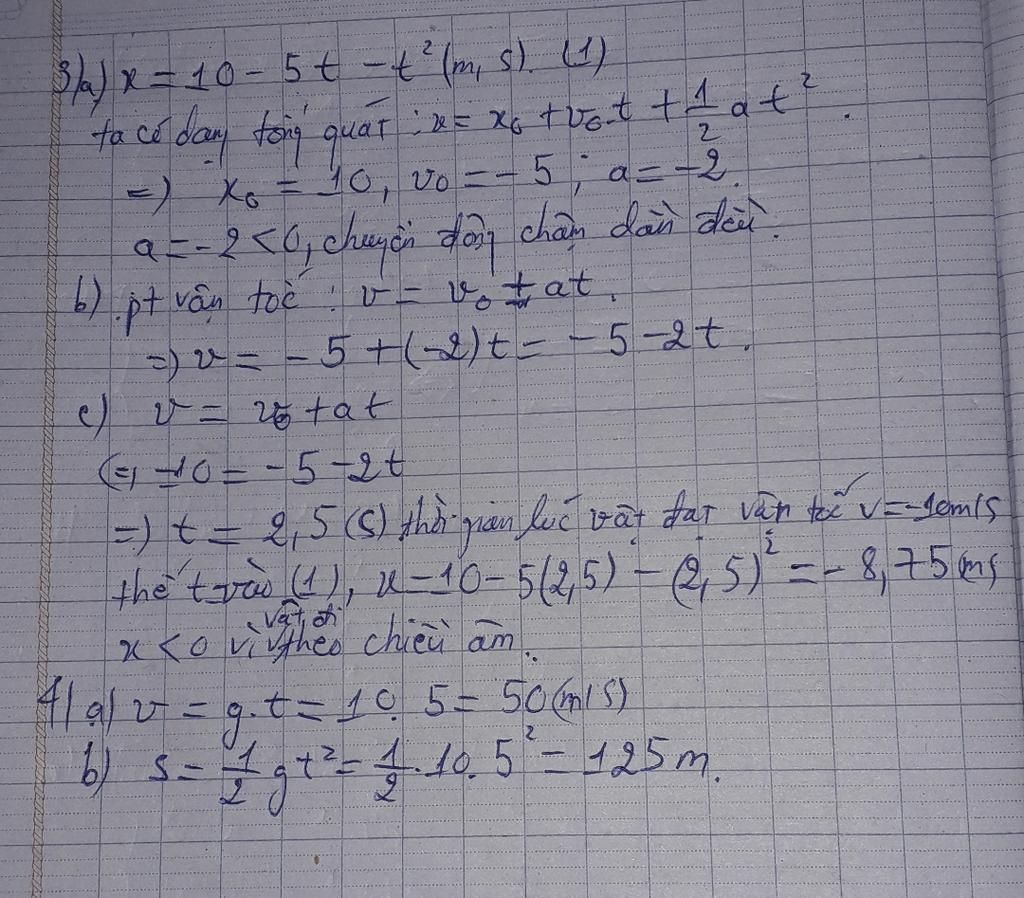 3/a) x = 10 - 5t - t² (m, s). (1)
ta có dạng tổng quát : x = x₀ + v₀.t + 1/2 at².
=) x₀ = 10, v₀ = -5 ; a = -2.
a = -2 < 0, chuyển động chậm dần đều.
b) pt vận tốc : v = v₀ + at.
=) v = -5 + (-2)t = -5 - 2t.
c) v = v₀ + at
(=) -10 = -5 - 2t
=) t = 2,5 (s) thời gian lúc vật đạt vận tốc v = -10m/s
thế t vào (1), x = 10 - 5(2,5) - (2,5)² = -8,75 (m)
x < 0 vì vật đi theo chiều âm.
4/a) v = g.t = 10. 5 = 50 (m/s)
b) s = 1/2 gt² = 1/2.10.5² = 125m.